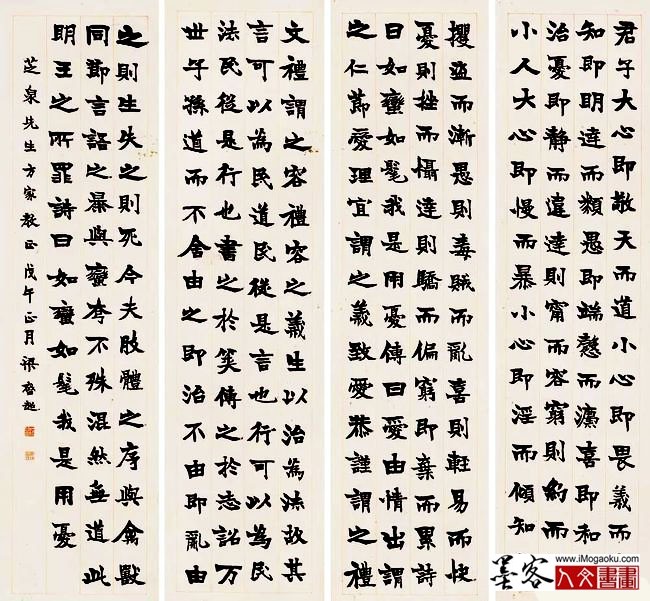 君子大心即敬天而道小心即畏義而
知即明達而類愚即端愨而灋喜即和
治憂即静而違達則甯而容窮則約而
小人大心即慢而暴小心即淫而傾知
攫盜而漸愚則毒賊而亂喜則輕易而快
憂則挫而懾達則驕而偏窮即棄而累詩
曰如蠻如髦我是用憂傳曰愛由情出謂
之仁節愛理宜謂之義致愛恭謹謂之禮
文禮謂之容禮容之義生以治為法故其
言可以為民道民從是言也行可以為民
法民從是行也書之於筴傳之於志詔万
世子孫道而不舍由之即治不由即亂由
之則生失之則死今夫肢體之序與禽獸
同節言語之暴與蠻夷不殊混然無道此
明王之所罪詩曰如蠻如髦我是用憂
芝泉先生方家教正戊午正月梁啓超
墨客
www.iMogaoku.com
人文書畫